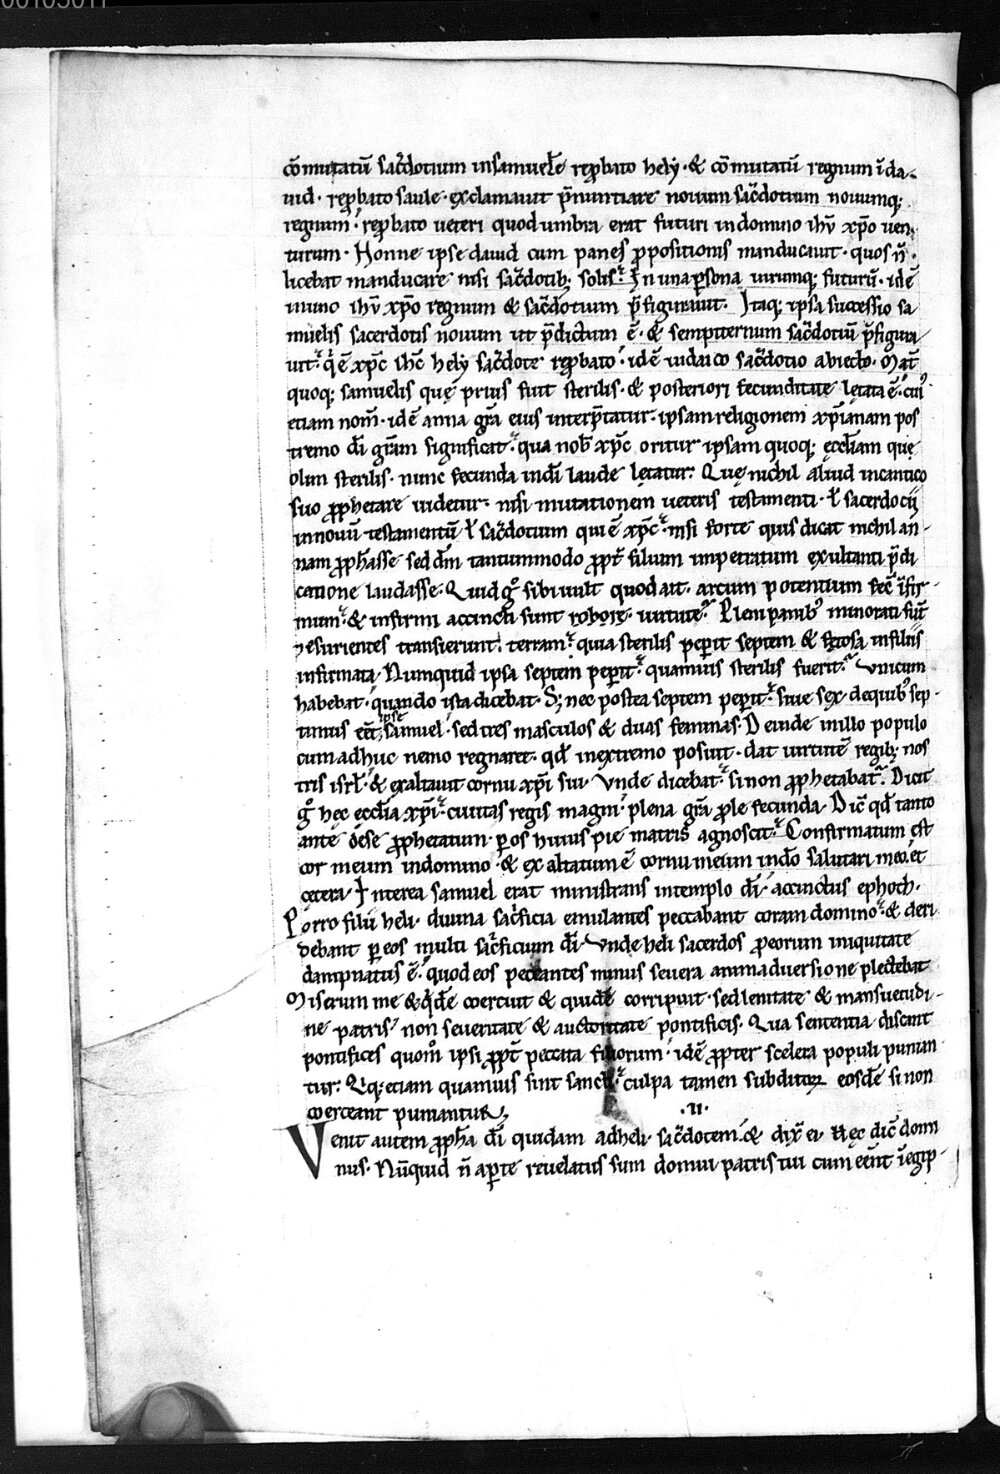 00105011
cōmutatū sac̄dotium insamuelē rep̱bato hely · & cōmutatū regnum ī da-
uid · rep̱bato saule · exclamauit p̄nuntiare nouum sac̄dotium nouumq;
regnum · rep̱bato ueteri quod umbra erat futuri in domino ihū xp̄o uen-
turum · Nonne ipse dauid cum panes p̱positionis manducauit · quos n̄
licebat manducare nisi sac̄dotib; solis · In una p̱sona utrumq; futurū · idē
in uno ihū xp̄o regnum & sac̄dotium p̄figurauit · Itaq; ipsa successio sa
muelis sacerdotis nouum ut p̄dictum ē · & sempiternum sac̄dotiū p̄figura
uit · q̄ ē xp̄c ih̄c hely sac̄dote rep̱bato · idē iudaico sac̄dotio abiecto · Mat̄
quoq; samuelis quę prius fuit sterilis · & posteriori fecunditate lętata ē · cui᾽
etiam nom̄ · idē anna gr̄a eius interp̄tatur · ipsam religionem xp̄ianam pos
tremo dī gr̄am significat · qua nob̄ xp̄c oritur ipsam quoq; eccl̄iam quę
olim sterilis · nunc fecunda in dī laude lętatur · Quę nichil aliud in cantico
suo p̱phetare uidetur · nisi mutationem ueteris testamenti · ł sacerdocii
in nouū testamentū ł sac̄dotium qui ē xp̄c · nisi forte quis dicat nichil an-
nam p̱ph̄asse sed dm̄ tantummodo p̱pt̄ filium impetratum exultanti p̄di
catione laudasse · Quid g° sibi uult quod ait · arcum potentium fec̄ īfir-
mum · & infirmi accincti sunt robore · uirtute · Pleni panib᾽ minorati sūt
⁊ esurientes transierunt terram · quia sterilis pep̱it septem & fętosa in filiis
infirmata · Numquid ipsa septem pep̱it · quamuis sterilis fuerit · Vnicum
habebat · quando ista dicebat · S; nec postea septem pep̱it · siue sex · de quib᾽ sep-
timus eēt ipse samuel · sed tres masculos & duas feminas · Deinde in illo populo
cum adhuc nemo regnaret · qd̄ in extremo posuit · dat uirtutē regib; nos
tris isrł · & exaltauit cornu xp̄i sui · Vnde dicebat · si non p̱phetabat · Dicit
g° hęc eccl̄ia xp̄i · ciuitas regis magni · plena gr̄a p̱le fecunda · Dic̄ qd̄ tanto
ante de se p̱phetatum · p̱ os huius pie matris agnoscit · Confirmatum est
cor meum in domino · & exaltatum ē cornu meum in dō salutari meo · et
cętera · Interea samuel erat ministrans in templo dī · accinctus ephoth ·
Porro filii heli · diuina sac̄ficia emulantes peccabant coram domino · & deri
debant p̱ eos multi sac̄ficium dī · Vnde heli sacerdos p̱ eorum iniquitate
dampnatus ē · quod eos peccantes minus seuera animaduersione plectebat
Miserum me & q̄dē coercuit & quidē corripuit · sed lenitate & mansuetudi-
ne patris · non seueritate & auctoritate pontificis · Qua sententia discant
pontifices quom̄ ipsi p̱pt̄ peccata filiorum · idē p̱pter scelera populi punian
tur · Q̇q; etiam quamuis sint sancti · culpa tamen subditoꝝ eosdē si non
coerceant puniantur;
·II·
Venit autem p̱ph̄a dī quidam ad heli · sac̄dotem · & dix̄ ei · Hęc dic̄ domi
nus · Nūquid n̄ ap̱te reuelatus sum domui patris tui cum eēnt ī egip-